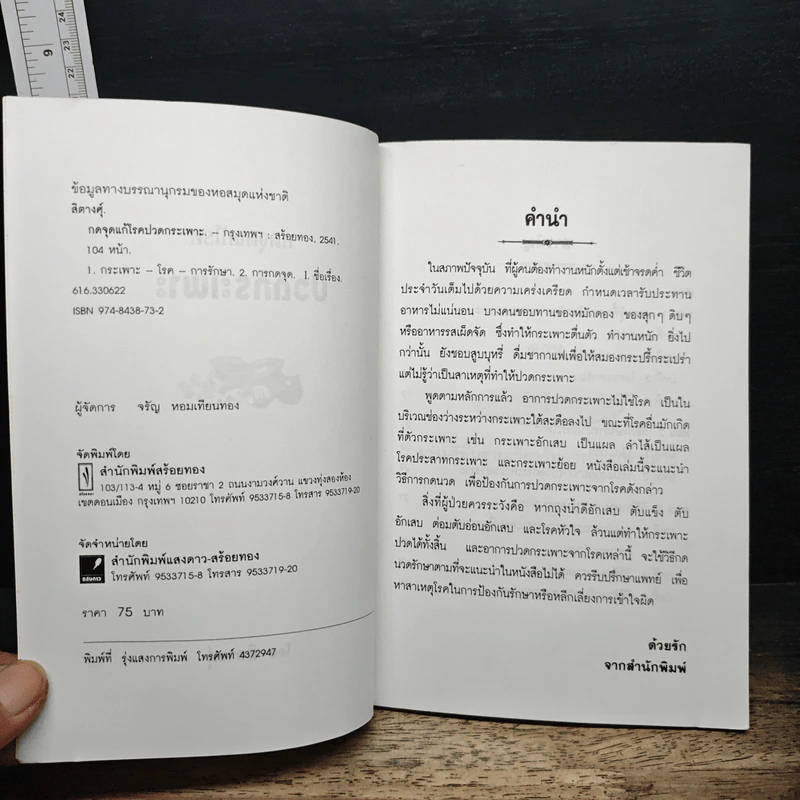 ข้อมูลทางบรรณานุกรมของหอสมุดแห่งชาติ
สิตางศุ์.
กดจุดแก้โรคปวดกระเพาะ. – กรุงเทพฯ : สร้อยทอง, 2541.
104 หน้า.
1. กระเพาะ – โรค – การรักษา. 2. การกดจุด. I. ชื่อเรื่อง.
616.330622
ISBN 974-8438-73-2
ผู้จัดการ จรัญ หอมเทียนทอง
จัดพิมพ์โดย
สำนักพิมพ์สร้อยทอง
103/113-4 หมู่ 6 ซอยราชา 2 ถนนงามวงศ์วาน แขวงทุ่งสองห้อง
เขตดอนเมือง กรุงเทพฯ 10210 โทรศัพท์ 9533715-8 โทรสาร 9533719-20
จัดจำหน่ายโดย
สำนักพิมพ์แสงดาว-สร้อยทอง
โทรศัพท์ 9533715-8 โทรสาร 9533719-20
แสงดาว
ราคา 75 บาท
พิมพ์ที่ รุ่งแสงการพิมพ์ โทรศัพท์ 4372947
คำนำ
ในสภาพปัจจุบัน ที่ผู้คนต้องทำงานหนักตั้งแต่เช้าจรดค่ำ ชีวิต
ประจำวันเต็มไปด้วยความเคร่งเครียด กำหนดเวลารับประทาน
อาหารไม่แน่นอน บางคนชอบทานของหมักดอง ของสุกๆ ดิบๆ
หรืออาหารรสเผ็ดจัด ซึ่งทำให้กระเพาะตื่นตัว ทำงานหนัก ยิ่งไป
กว่านั้น ยังชอบสูบบุหรี่ ดื่มชากาแฟเพื่อให้สมองกระปรี้กระเปร่า
แต่ไม่รู้ว่าเป็นสาเหตุที่ทำให้ปวดกระเพาะ
พูดตามหลักการแล้ว อาการปวดกระเพาะไม่ใช่โรค เป็นใน
บริเวณช่องว่างระหว่างกระเพาะใต้สะดือลงไป ขณะที่โรคอื่นมักเกิด
ที่ตัวกระเพาะ เช่น กระเพาะอักเสบ เป็นแผล ลำไส้เป็นแผล
โรคประสาทกระเพาะ และกระเพาะย้อย หนังสือเล่มนี้จะแนะนำ
วิธีการกดนวด เพื่อป้องกันการปวดกระเพาะจากโรคดังกล่าว
สิ่งที่ผู้ป่วยควรระวังคือ หากถุงน้ำดีอักเสบ ตับแข็ง ตับ
อักเสบ ต่อมตับอ่อนอักเสบ และโรคหัวใจ ล้วนแต่ทำให้กระเพาะ
ปวดได้ทั้งสิ้น และอาการปวดกระเพาะจากโรคเหล่านี้ จะใช้วิธีกด
นวดรักษาตามที่จะแนะนำในหนังสือไม่ได้ ควรรีบปรึกษาแพทย์ เพื่อ
หาสาเหตุโรคในการป้องกันรักษาหรือหลีกเลี่ยงการเข้าใจผิด
ด้วยรัก
จากสำนักพิมพ์
9
24
23
22